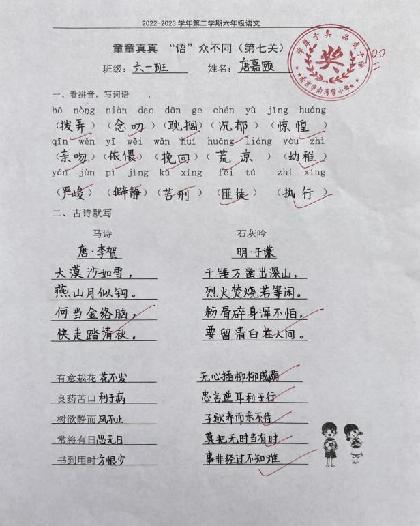 2022-2023学年第二学期六年级语文
童童真真 “语”众不同（第七关）
班级：六一班 姓名：唐嘉颐
奖
一、看拼音，写词语
bō nòng niàn dao dān ge chén yù jīng huáng
（拨弄）（念叨）（耽搁）（沉郁）（惊惶）
qīn wěn yī wēi wǎn huí huāng liáng yòu zhì
（亲吻）（依偎）（挽回）（荒凉）（幼稚）
yán jùn pì jìng kǔ xíng fěi tú zhí xíng
（严峻）（僻静）（苦刑）（匪徒）（执行）
二、古诗默写
马诗 石灰吟
唐·李贺 明·于谦
大漠沙如雪， 千锤万凿出深山，
燕山月似钩。 烈火焚烧若等闲。
何当金络脑， 粉骨碎身浑不怕，
快走踏清秋。 要留清白在人间。
有意栽花花不发 无心插柳柳成荫
良药苦口利于病 忠言逆耳利于行
树欲静而风不止 子欲养而亲不待
常将有日思无日 莫把无时当有时
书到用时方恨少 事非经过不知难